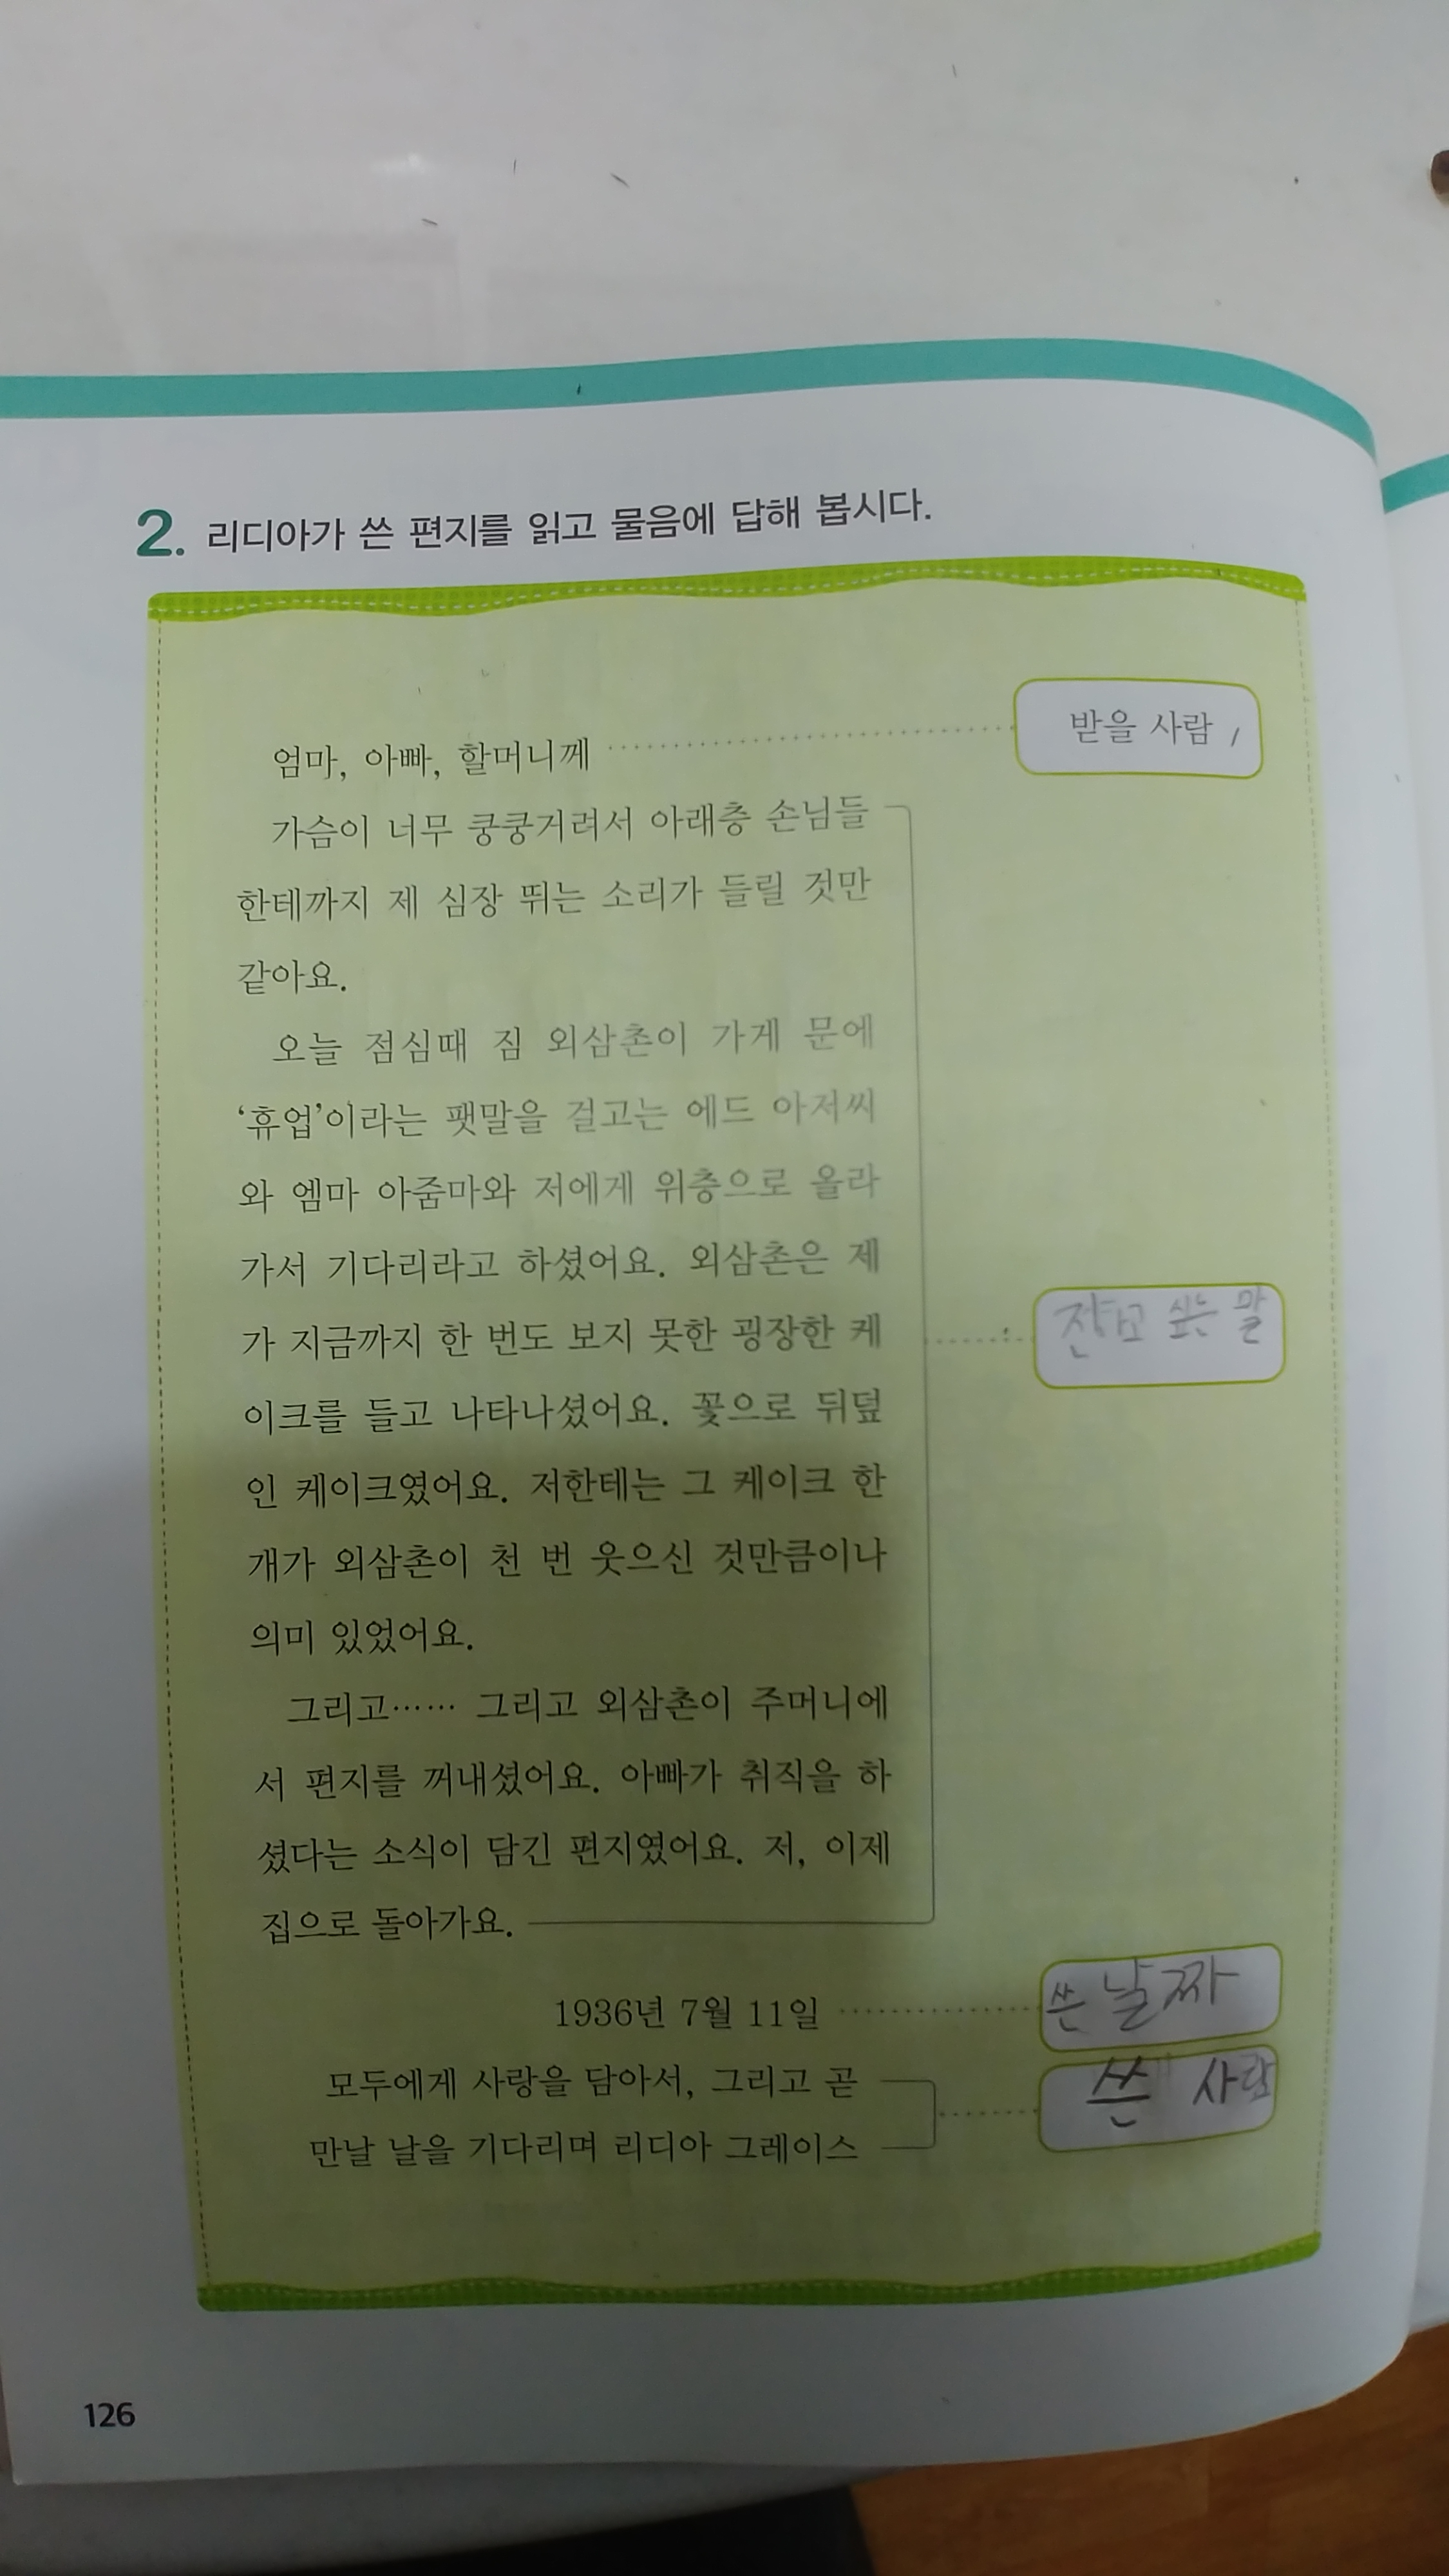 2. 리디아가 쓴 편지를 읽고 물음에 답해 봅시다.
엄마, 아빠, 할머니께
받을 사람
가슴이 너무 쿵쿵거려서 아래층 손님들
한테까지 제 심장 뛰는 소리가 들릴 것만
같아요.
오늘 점심때 짐 외삼촌이 가게 문에
‘휴업’이라는 팻말을 걸고는 에드 아저씨
와 엠마 아줌마와 저에게 위층으로 올라
가서 기다리라고 하셨어요. 외삼촌은 제
가 지금까지 한 번도 보지 못한 굉장한 케
이크를 들고 나타나셨어요. 꽃으로 뒤덮
인 케이크였어요. 저한테는 그 케이크 한
개가 외삼촌이 천 번 웃으신 것만큼이나
의미 있었어요.
그리고…… 그리고 외삼촌이 주머니에
서 편지를 꺼내셨어요. 아빠가 취직을 하
셨다는 소식이 담긴 편지였어요. 저, 이제
집으로 돌아가요.
싶은 말
1936년 7월 11일
쓴 날짜
모두에게 사랑을 담아서, 그리고 곧
만날 날을 기다리며 리디아 그레이스
쓴 사람
126